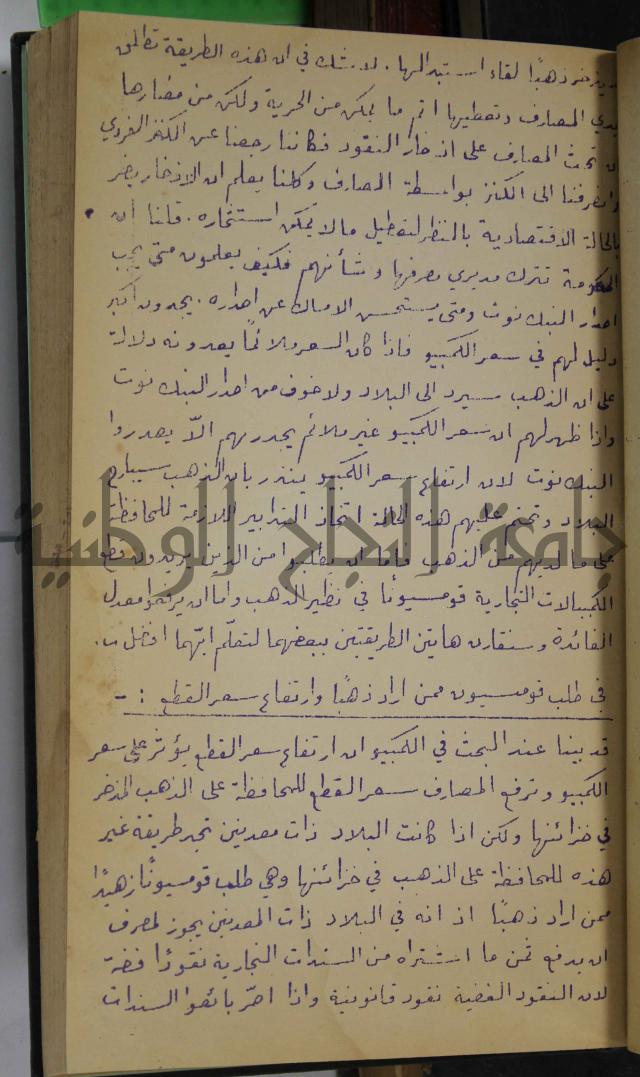 يدخر ذهبًا لقاء استبدالها. لا شك في ان هذه الطريقة تطلق
يدي المصارف وتعطيها اتم ما يمكن من الحرية ولكن من مضارها
ان تحث المصارف على ادخار النقود فكاننا رجعنا عن الكنز الفردي
وانصرفنا الى الكنز بواسطة المصارف وكلنا يعلم ان الادخار يضر
بالحالة الاقتصادية بالنظر لتعطيل ما لا يمكن استثماره. قلنا ان
الحكومة تترك مديري مصرفها وشأنهم فكيف يعلمون متى يجب
اصدار البنك نوت ومتى يستحسن الامساك عن اصداره. يجدون اكبر
دليل لهم في سعر الكمبيو فاذا كان السعر ملائمًا يعدونه دلالة
على ان الذهب سيرد الى البلاد ولا خوف من اصدار البنك نوت
واذا ظهر لهم ان سعر الكمبيو غير ملائم يجدر بهم الّا يصدروا
البنك نوت لان ارتفاع سعر الكمبيو ينذر بان الذهب سيبارح
البلاد وتحتم عليهم هذه الحالة اتخاذ التدابير اللازمة للمحافظة
على ما لديهم من الذهب فاما ان يطلبوا من الذين يريدون قطع
الكمبيالات التجارية قومسيونًا في نظير الذهب واما ان يرفعوا معدل
الفائدة وسنقارن هاتين الطريقتين ببعضهما لتعلّم ايّهما افضل
في طلب قومسيون ممن اراد ذهبًا وارتفاع سعر القطع : -
قد بينا عند البحث في الكمبيو ان ارتفاع سعر القطع يؤثر على سعر
الكمبيو وترفع المصارف سعر القطع للمحافظة على الذهب المدخر
في خزائنها ولكن اذا كانت البلاد ذات معدنين تجد طريقة غير
هذه للمحافظة على الذهب في خزائنها وهي طلب قومسيونًا زهيدًا
ممن اراد ذهبًا اذ انه في البلاد ذات المعدنين يجوز لمصرف
ان يدفع ثمن ما اشتراه من السندات التجارية نقودًا فضة
لان النقود الفضية نقود قانونية واذا اصرّ بائعوا السندات
جامعة النجاح الوطنية